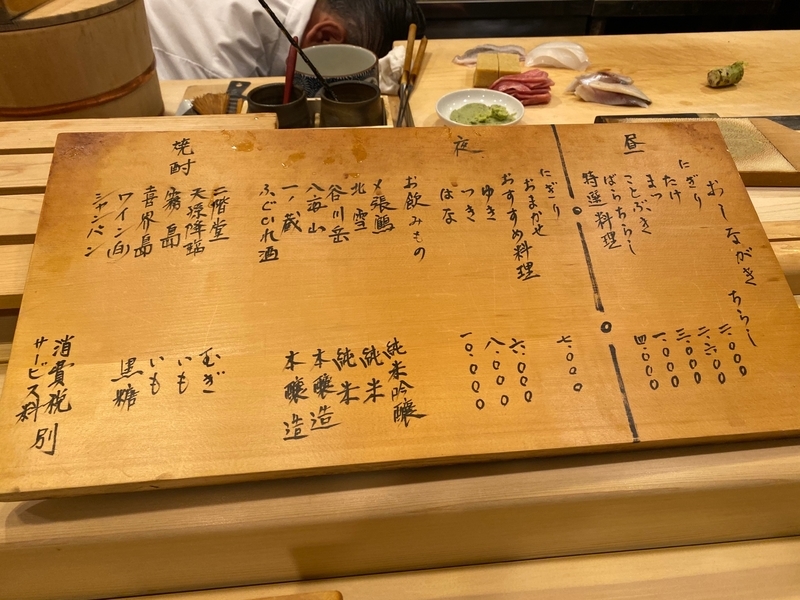 おしながき ちらし
昼
にぎり
たけ
まつ
ことぶき
ばらちらし
特選料理
二.〇〇〇
二.六〇〇
三.〇〇〇
一.〇〇〇
四.〇〇〇
夜
にぎり
おまかせ 七.〇〇〇
おすすめ料理
ゆき 六.〇〇〇
つき 八.〇〇〇
はな 一〇.〇〇〇
お飲みもの
〆張鶴 純米吟醸
北雪 純米
谷川岳 純米
八海山 本醸造
一ノ蔵 本醸造
ふぐひれ酒
焼酎
二階堂 むぎ
天孫降臨 いも
霧島 いも
喜界島 黒糖
ワイン(白)
シャンパン
消費税
サービス料 別